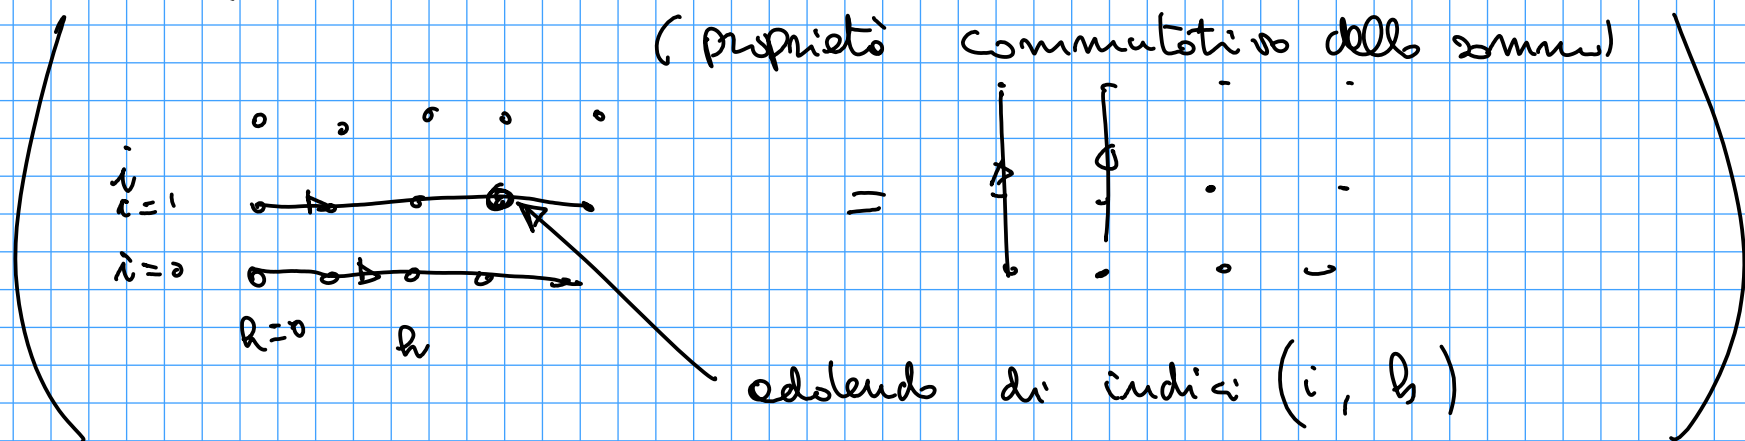 (proprietà commutativa della somma)
i
i=1
=
i=0
h=0 h
addendo di indici (i, h)